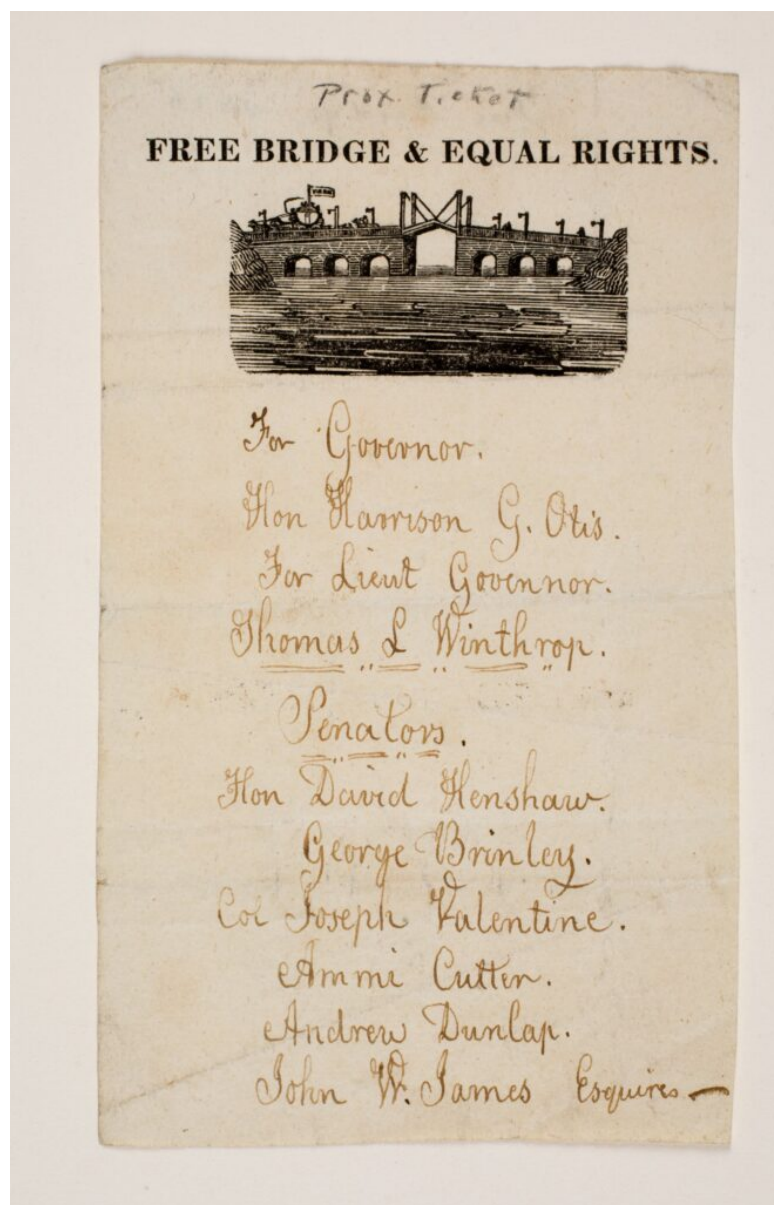 Prox. Ticket
FREE BRIDGE & EQUAL RIGHTS.
For Governor.
Hon Harrison G. Otis.
For Lieut Govennor.
Thomas L Winthrop.
Senators.
Hon David Henshaw.
George Brinley.
Col Joseph Valentine.
Ammi Cutter.
Andrew Dunlap.
John W. James Esquires